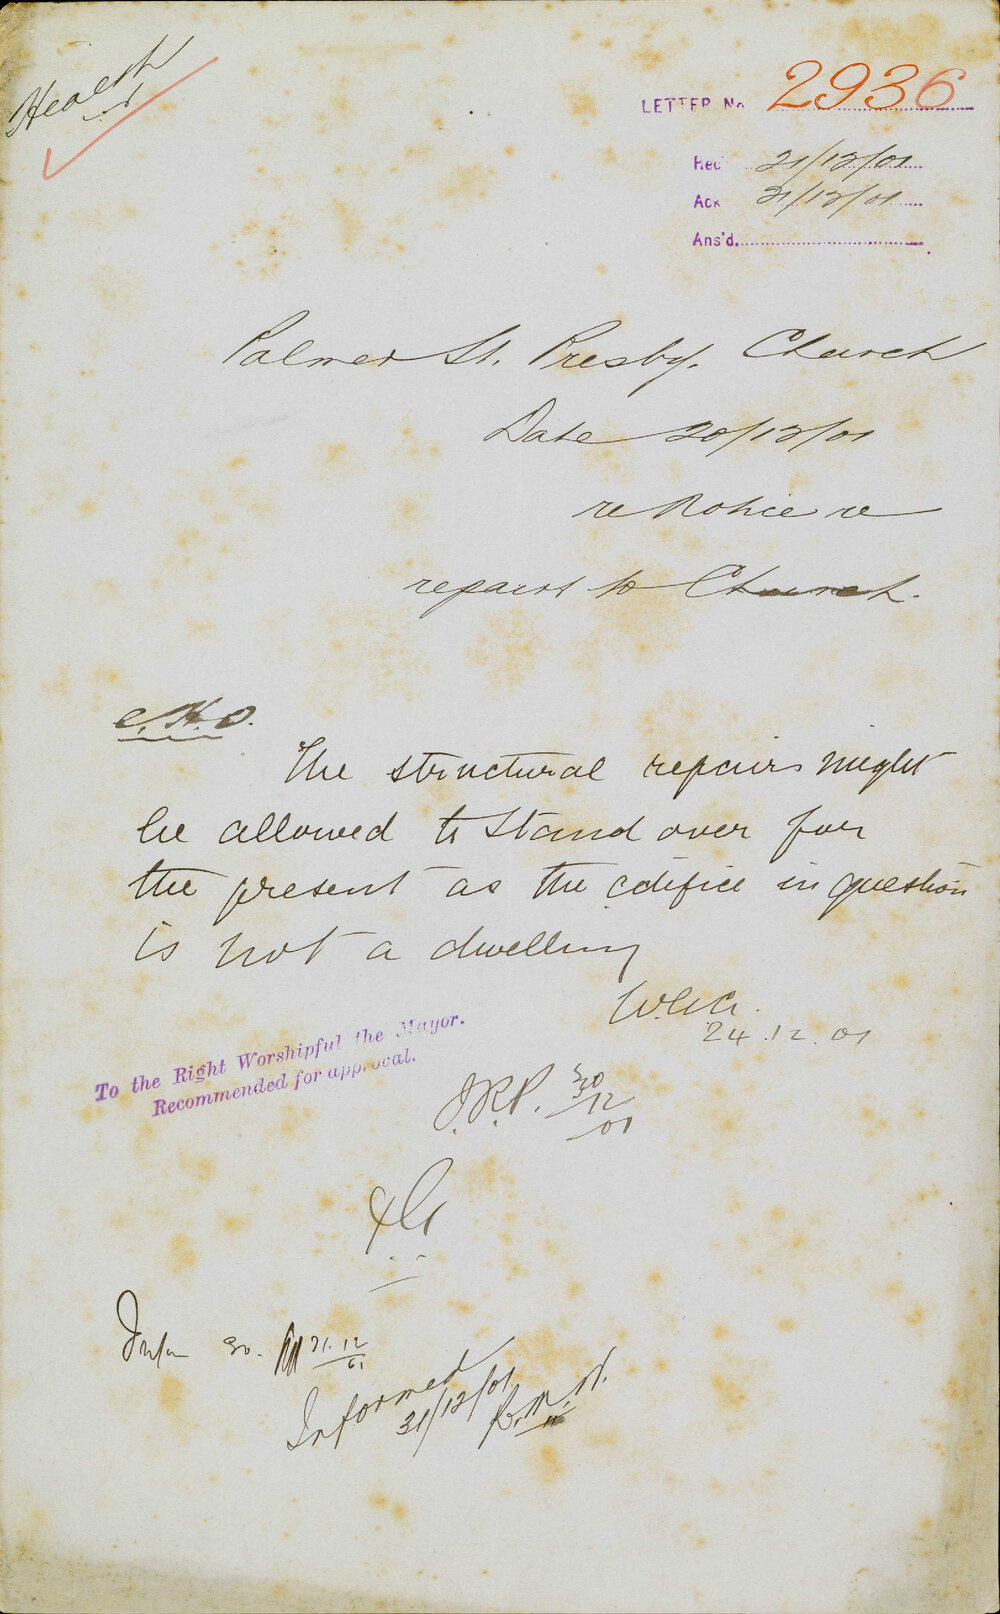 Health
LETTER No 2936
Rec'd 21/12/01
Ack 21/12/01
Ans'd.
Palmer St. Presby. Church
Date 20/12/01
re Notice re
repairs to Church.
C.H.O.
The structural repairs might
be allowed to stand over for
the present as the edifice in question
is not a dwelling
24.12.01
To the Right Worshipful the Mayor.
Recommended for approval.
J.R.P. 30/12/01
Inform so. 31.12/01
Informed
31/12/01